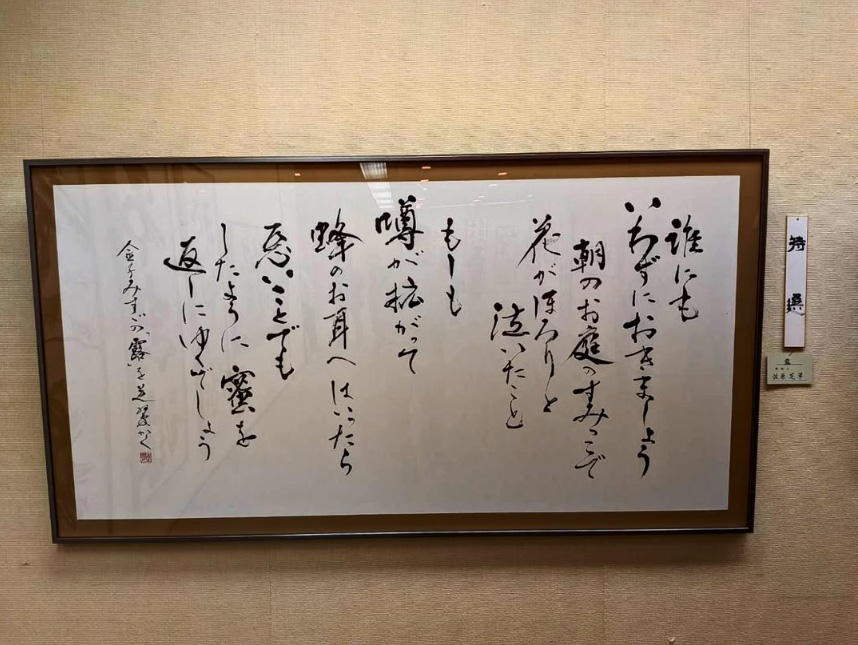 誰にも
いわずにおきましょう
朝のお庭のすみっこで
花がほろりと
泣いたこと
もしも
噂が拡がって
蜂のお耳へはいったら
悪いことでも
したように蜜を
返しにゆくでしょう
金子みすゞの「露」を芝翠かく
特選